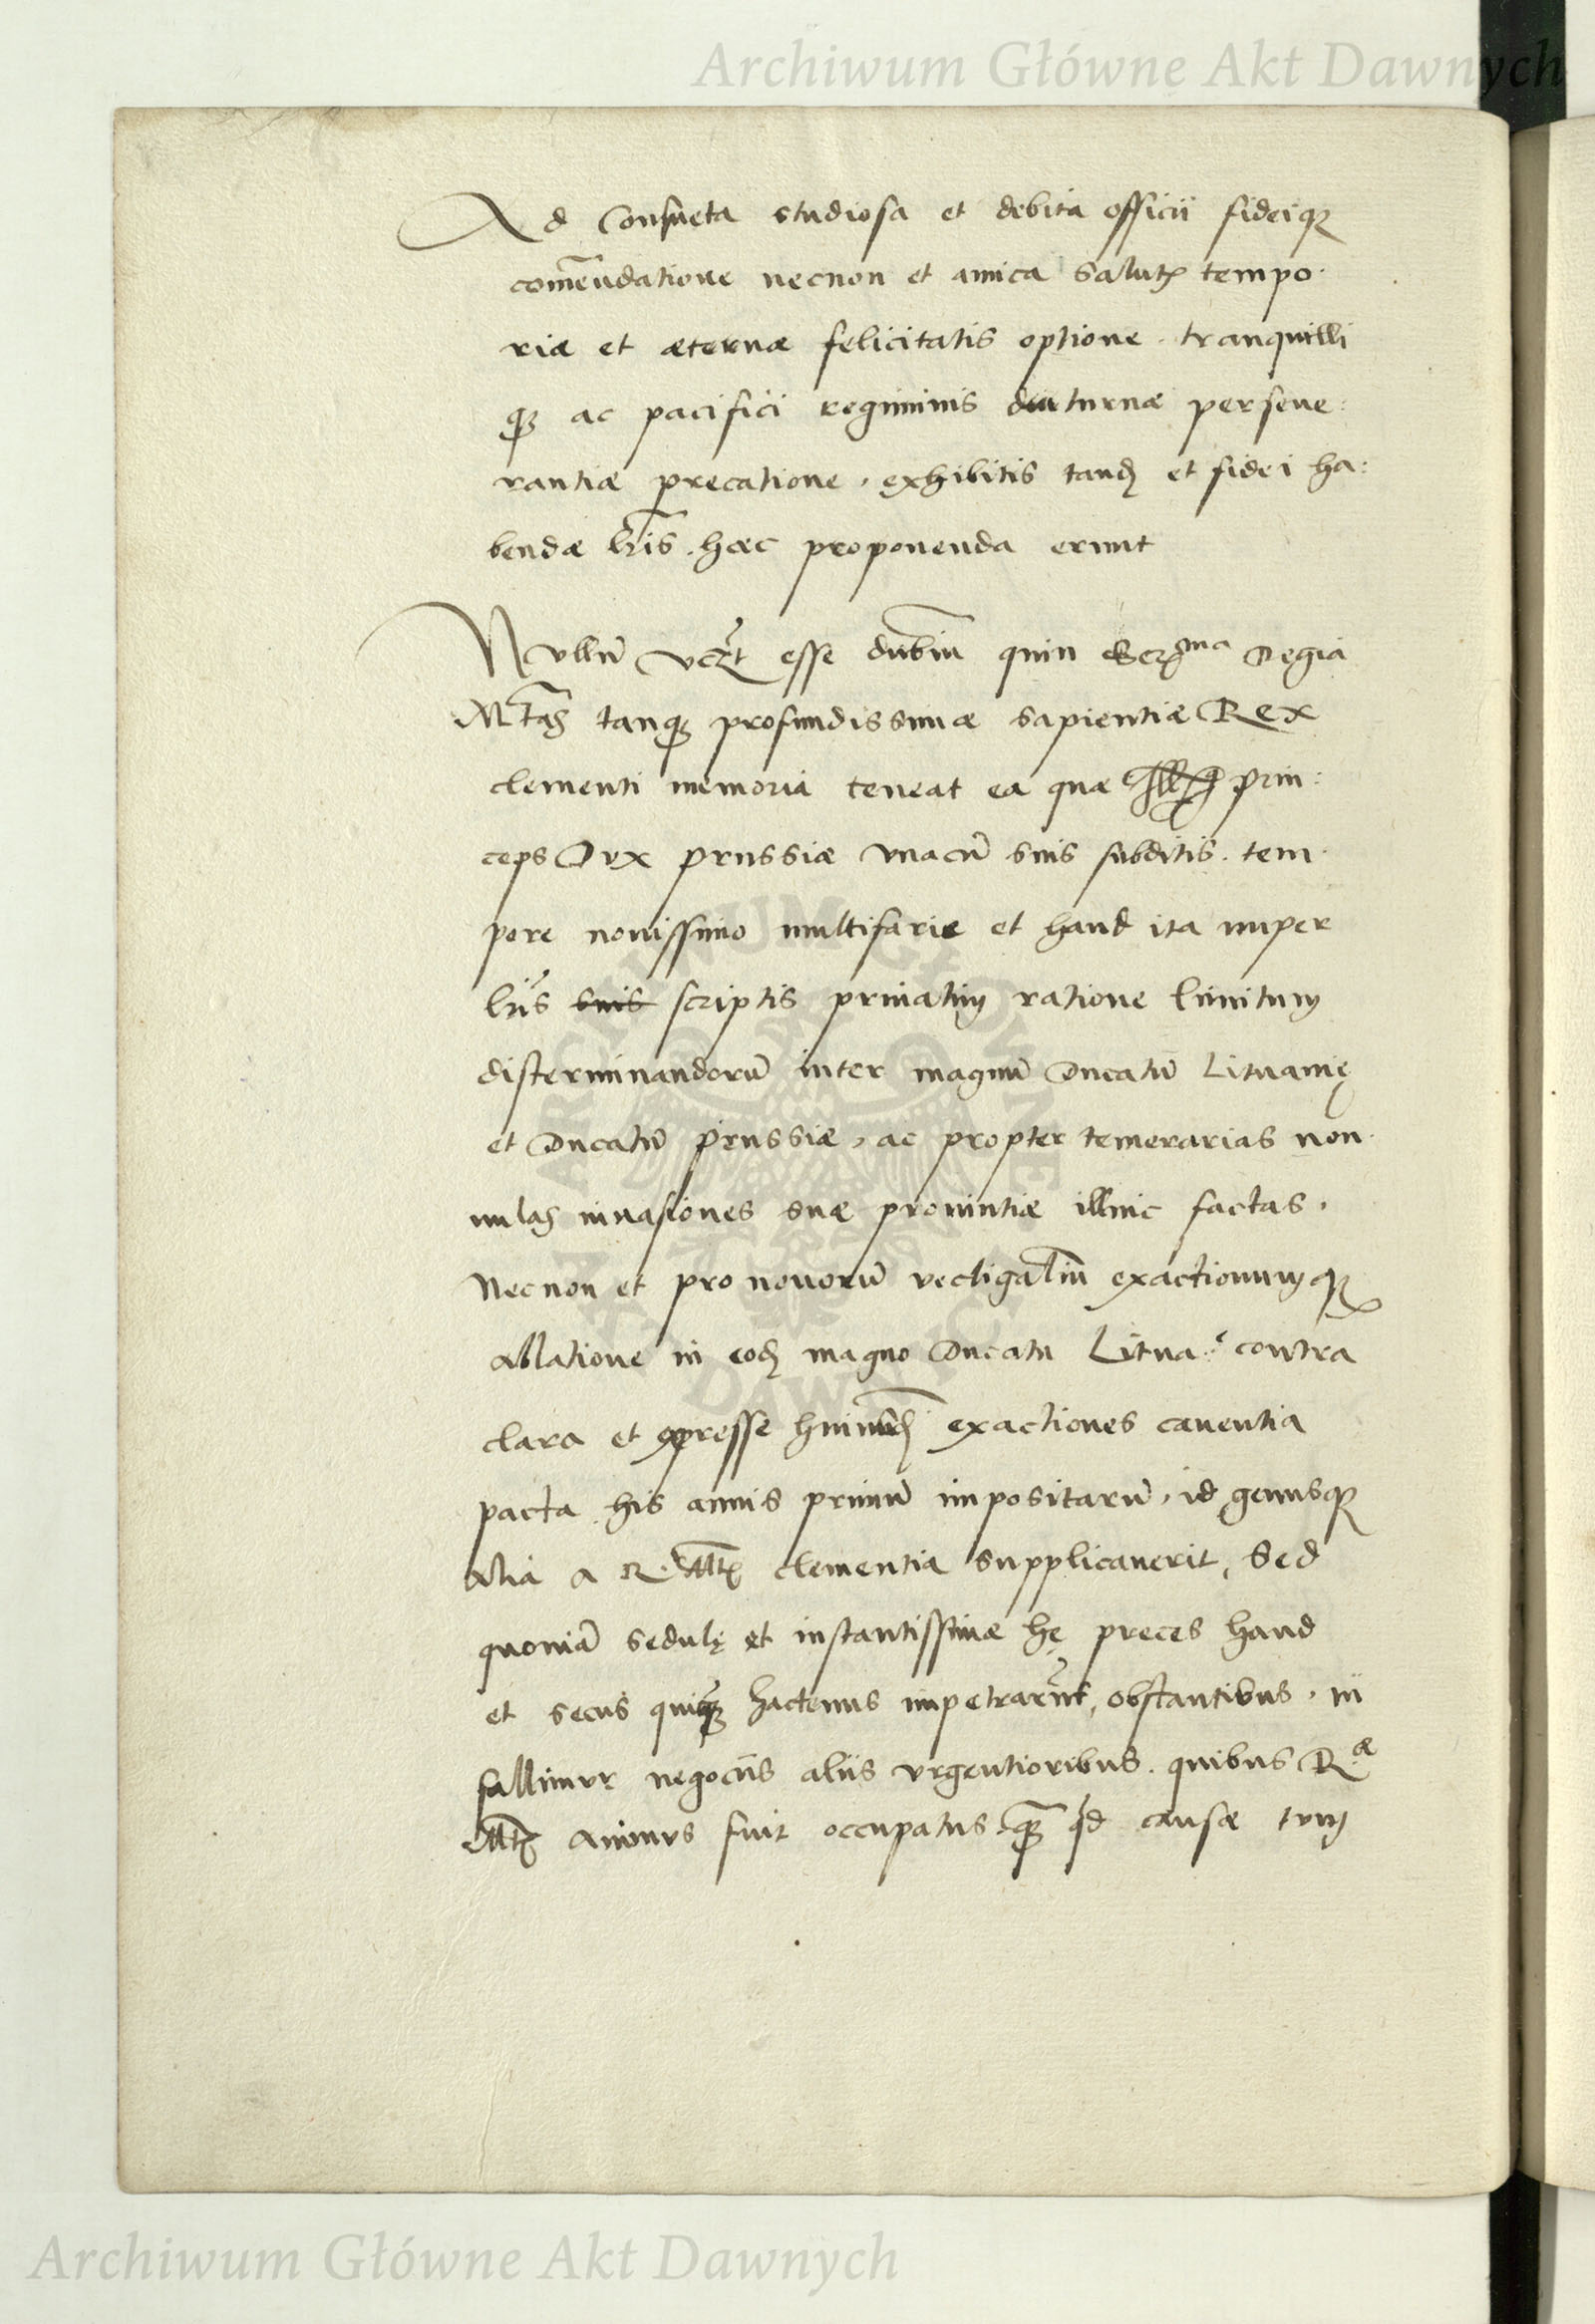 Archiwum Główne Akt Dawnych
Ad Consueta studiosa et debita officii fideiq̃
com̃endatione necnon et amica Salut̃ tempo·
riæ et æternæ felicitatis optione. tranquilli
q̃ ac pacifici regiminis diuturnæ perseue:
rantiæ precatione, exhibitis tand̃ et fidei ha:
bendæ lr̃is. hæc proponenda erunt
Nullũ esse dubiũ quin Ser̃ma Regia
Mtãs tanq̃ profundissimæ sapientiæ Rex
clementi memoria teneat ea quæ prin:
ceps Dux prussiæ vnacũ suis subditis. tem·
pore nouissimo multifarie et haud ita nuper
lr̃is suis scriptis priuatim ratione limitum
disterminandorũ inter magnũ Ducatũ Lituanię
et Ducatũ prussiæ, ac propter temerarias non·
nulas inuasiones suæ prouintiæ illinc factas,
Necnon et pro nouorũ vectigaliũ exactionumq̃
ablatione in eod̃ magno Ducatu Litua: contra
clara et expresse huiusmd̃ exactiones cauentia
pacta his annis primũ impositarũ, id genusq̃
alia a R. Mt̃ clementia supplicauerit, Sed
quoniã sedulę et instantissimæ hę preces haud
et secus hactenus impetrarũt, obstantibus, ni
fallimur negociis aliis vrgentioribus. quibus R.æ
Mt̃ animus fuit occupatus q̃ qd causæ tum
ARCHIWUM GŁÓWNE
AKT DAWNYCH
Archiwum Główne Akt Dawnych